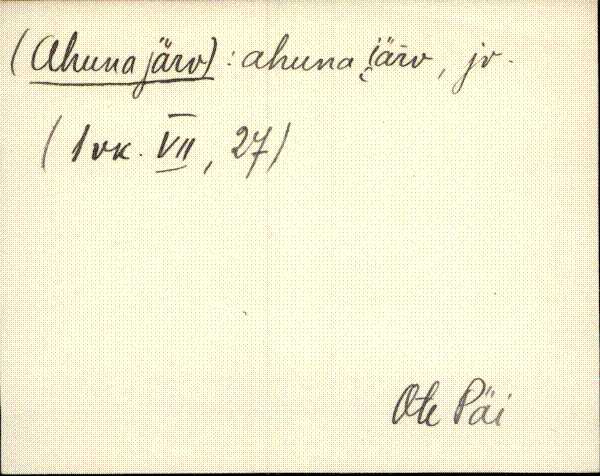 (Ahuna järv) : ahuna järv, jv.
(1 vk. VII, 27)
Ote Päi